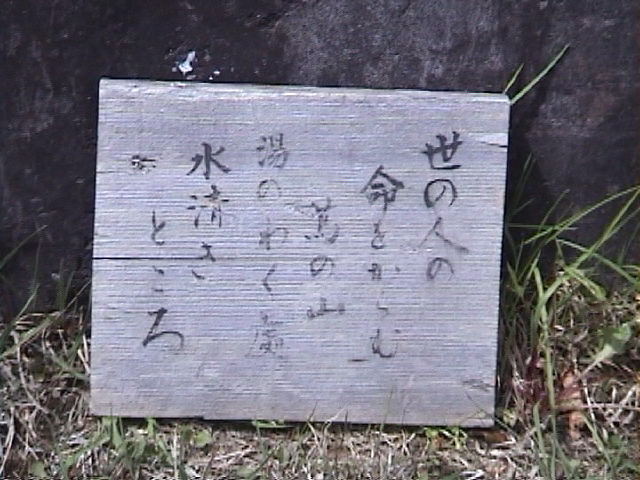 世の人の
命をからむ
蔦の山
湯のわく處
水清き
ところ